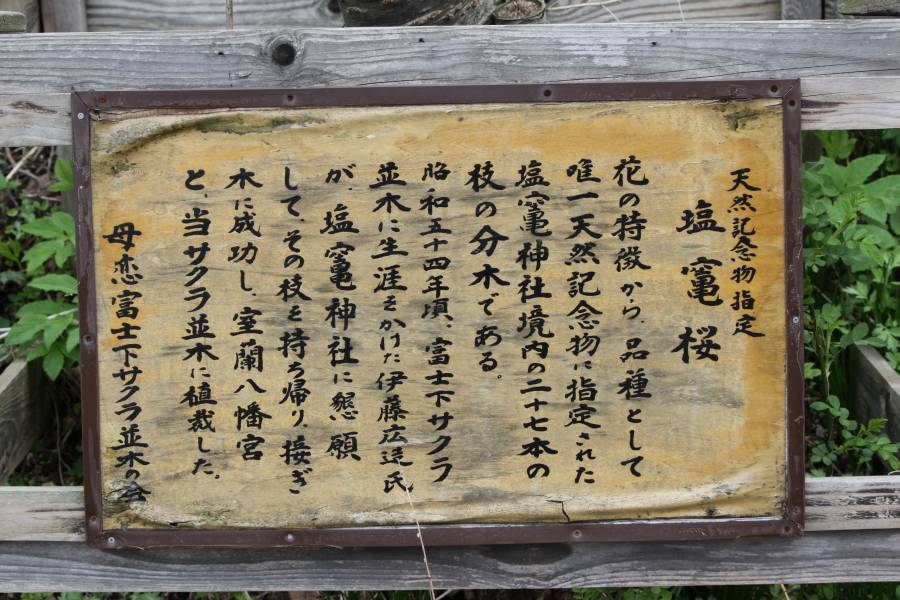 天然記念物指定
塩竈桜
花の特徴から、品種として
唯一天然記念物に指定された
塩竈神社境内の二十七本の
枝の分木である。
昭和五十四年頃、富士下サクラ
並木に生涯をかけた伊藤広送氏
が、塩竈神社に懇願
して、その枝を持ち帰り、接ぎ
木に成功し、室蘭八幡宮
と、当サクラ並木に植裁した。
母恋富士下サクラ並木の会